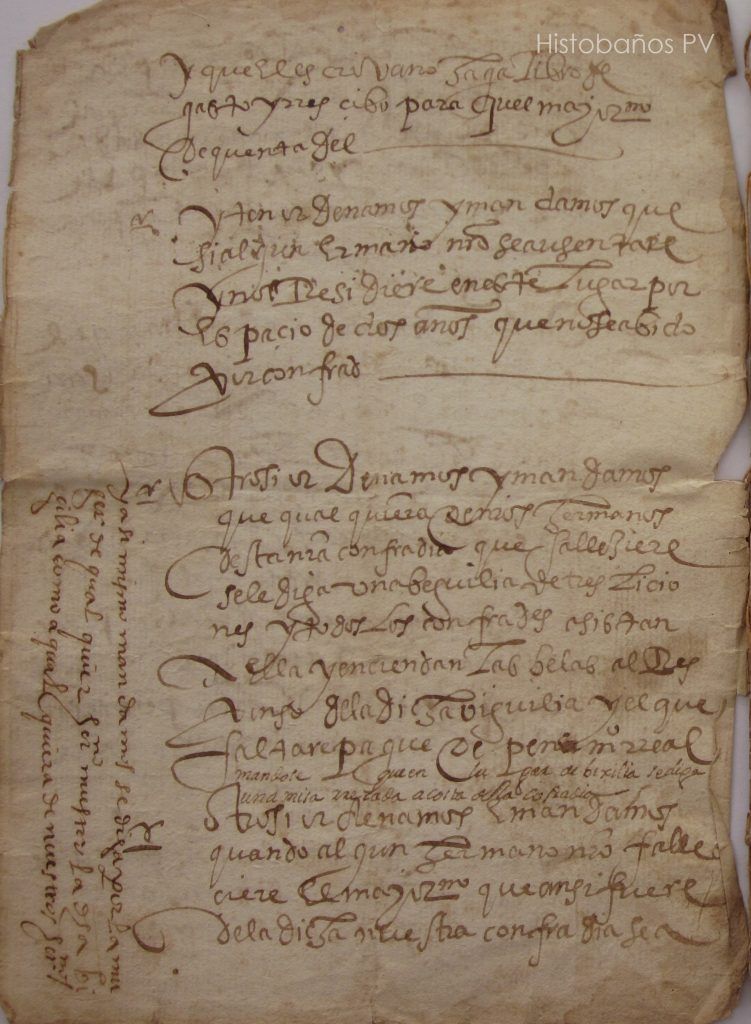 Histobaños PV
y que el es crivano haga libro de
gasto y rres cibo para quel mayormo
de quenta del
Yten ordenamos y man damos que
si algun ermano nro se ausentare
y nos Residiere en este lugar por
es pacio de dos años que no sea bido
por confrad
Otrosi or Denamos y man damos
que qual quiera de nros hermanos
desta nra confradia que fallesiere
se le diga una beguilia de tres licio
nes y todos los confrades asistan
a ella y enciendan las belas al Res
ponso della dicha viguilia y el que
faltare pague de pena mo rreal
mandose que en lugar de bixilia se diga
una misa rrezada a costa de la cofradia
Otrosi ordenamos e man damos
quando algun hermano nro falle
ciere el mayormo que ansi fuere
de la dicha nuestra confradia sea
y asi mismo man damos se diga por la mu
ger de qual quier hermo por muger la dha bi
cilia como a qual quiera de nuestros hermos